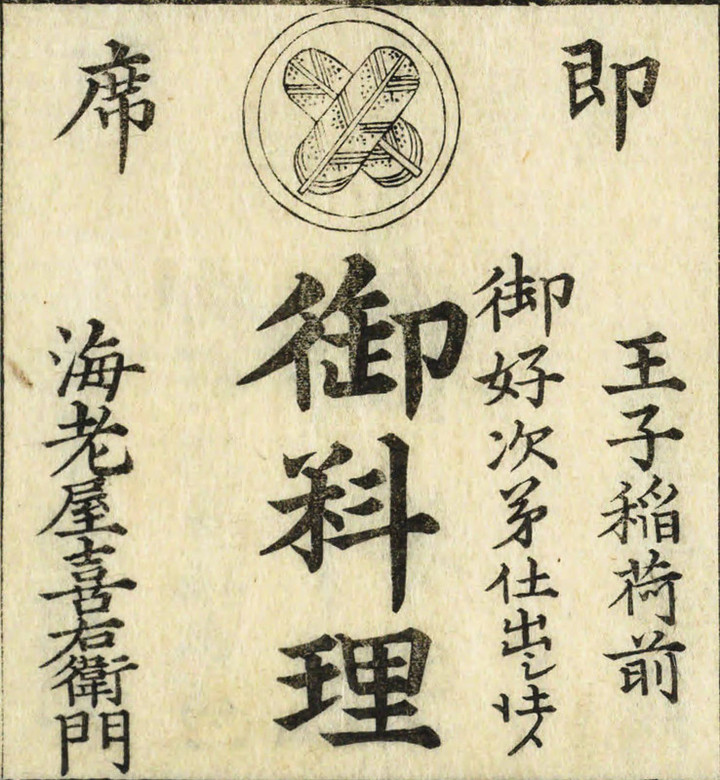 即席
王子稲荷前
御好次第仕出し仕候
御料理
海老屋喜右衛門